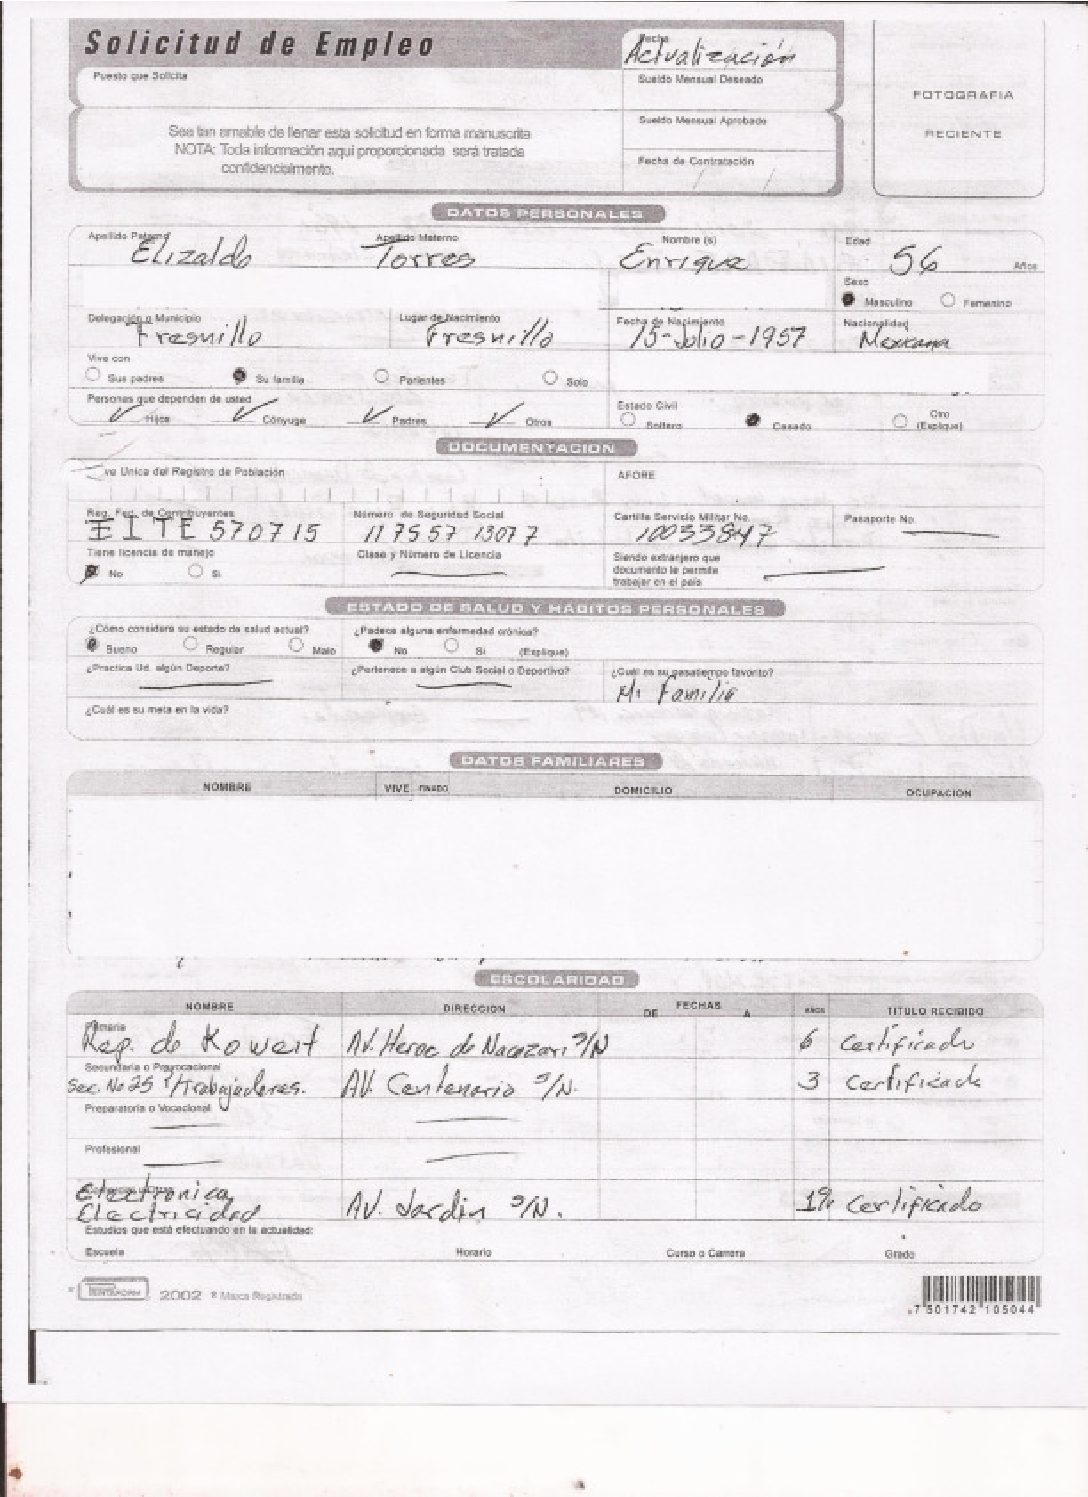 Solicitud de Empleo
Fecha
Actualización
Puesto que Solicita
Sueldo Mensual Deseado
FOTOGRAFIA
RECIENTE
Sea tan amable de llenar esta solicitud en forma manuscrita
NOTA: Toda información aquí proporcionada será tratada
confidencialmente.
Sueldo Mensual Aprobado
Fecha de Contratación
DATOS PERSONALES
Apellido Paterno Apellido Materno Nombre (s) Edad
Elizalde Torres Enrique 56 Años
Sexo
Masculino Femenino
Delegación o Municipio Lugar de Nacimiento Fecha de Nacimiento Nacionalidad
Fresnillo Fresnillo 15-Julio-1957 Mexicana
Vive con
Sus padres Su familia Parientes Solo
Personas que dependen de usted Estado Civil
Hijos Cónyuge Padres Otros Soltero Casado Otro (Explique)
DOCUMENTACION
ve Unica del Registro de Población AFORE
Reg. Fed. de Contribuyentes Número de Seguridad Social Cartilla Servicio Militar No. Pasaporte No.
EITE 570715 117557 13077 10033847
Tiene licencia de manejo Clase y Número de Licencia Siendo extranjero que
documento le permite
trabajar en el país
No Si
ESTADO DE SALUD Y HABITOS PERSONALES
¿Cómo considera su estado de salud actual? ¿Padece alguna enfermedad crónica?
Bueno Regular Malo No Si (Explique)
¿Practica Ud. algún Deporte? ¿Pertenece a algún Club Social o Deportivo? ¿Cuál es su pasatiempo favorito?
Mi Familia
¿Cuál es su meta en la vida?
DATOS FAMILIARES
NOMBRE VIVE FINADO DOMICILIO OCUPACION
ESCOLARIDAD
NOMBRE DIRECCION FECHAS DE A AÑOS TITULO RECIBIDO
Primaria
Rep. de Koweit AV. Heroe de Nacozari S/N 6 Certificado
Secundaria o Prevocacional
Sec. No 25 P/Trabajadores. AV. Centenario S/N. 3 Certificado
Preparatoria o Vocacional
Profesional
Electronica
Electricidad AV. Jardin S/N. Certificado
Estudios que está efectuando en la actualidad:
Escuela Horario Curso o Carrera Grado
2002 ® Marca Registrada
7 501742 105044